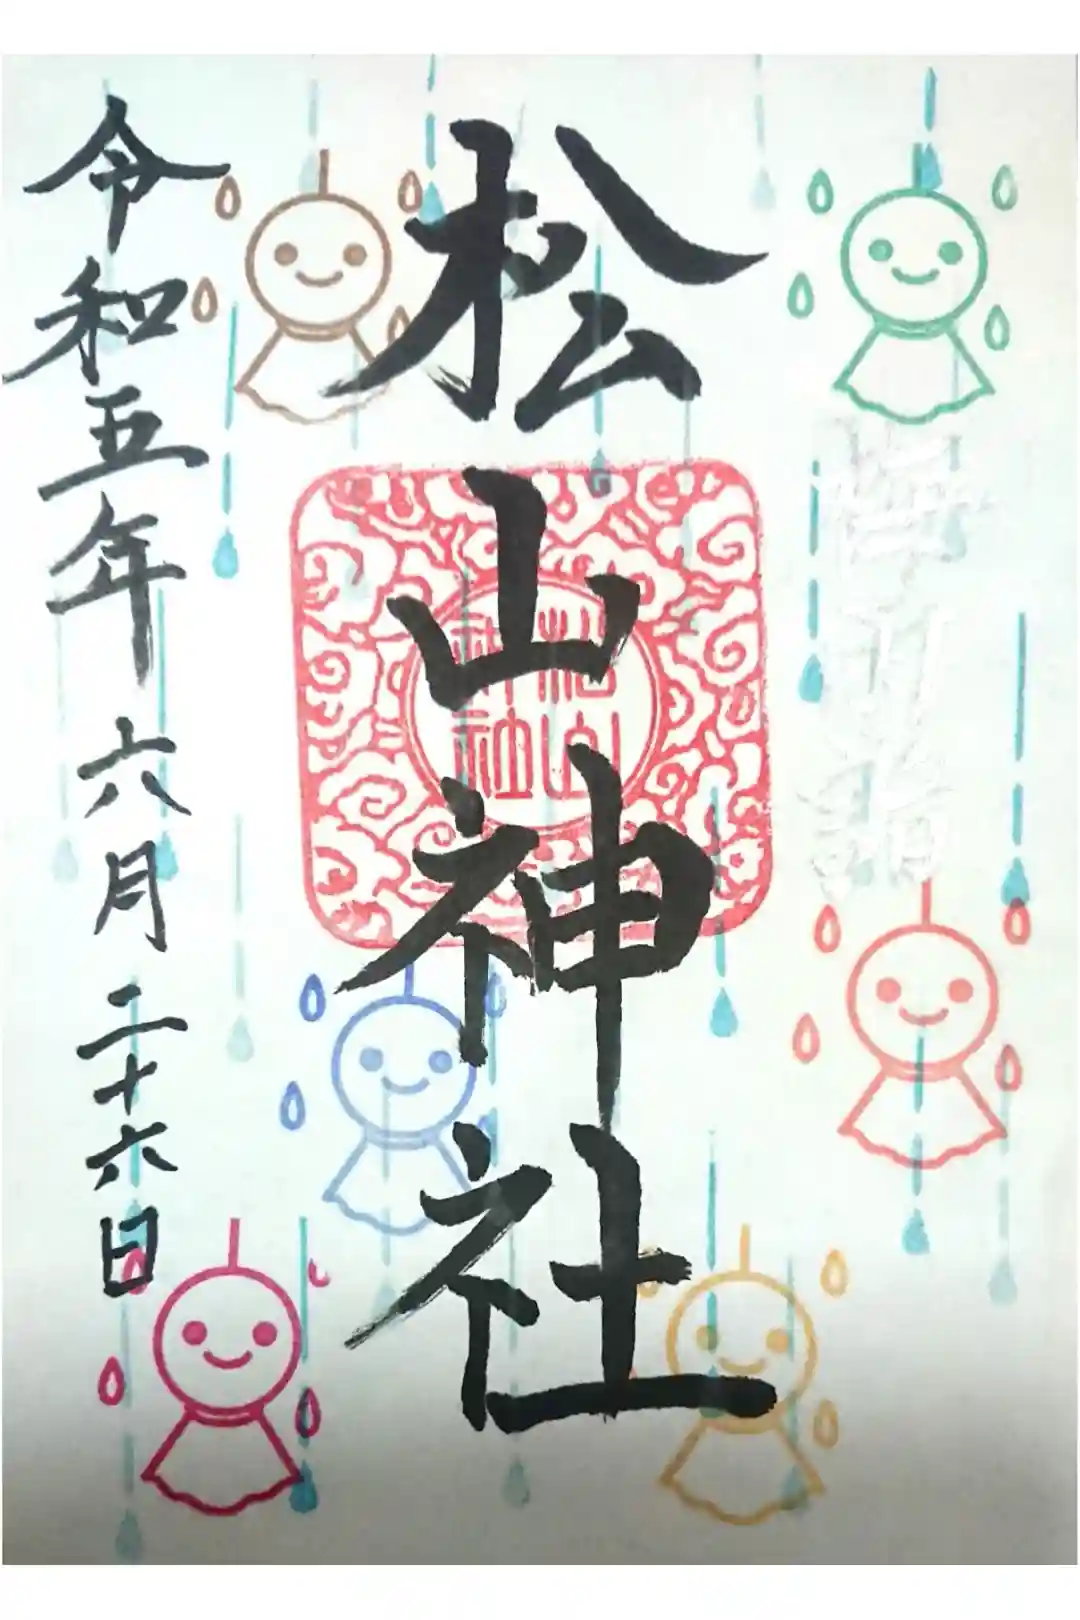 松山神社
松山
神社
令和五年 六月 二十六日